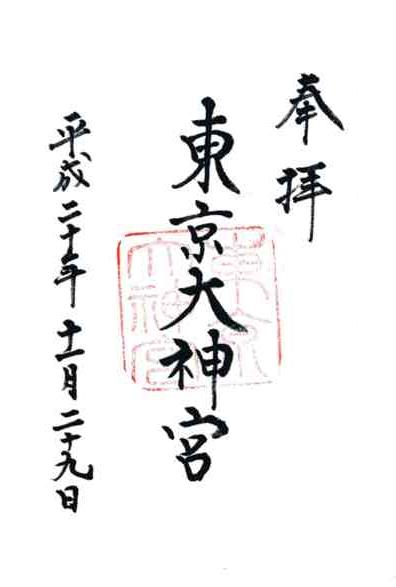 奉拝
東京大神宮
平成二十年十一月二十九日
東京大神宮